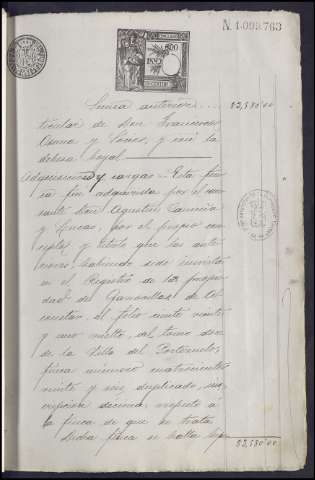 N. 1.099.763
Suma anterior.... 82,580'00
ticular de Don Francisco
Osuna y Socios, y con la
dehesa boyal
Adquisiciones y cargas. Esta fin
ca fue adquirida por el cau
sante Don Agustin
y por el propio con
cepto y título que las ante
riores, habiendo sido inscrita
en el Registro de la propie
dad de Garrovillas de
al folio ciento veinte
y uno vuelto, del tomo
de la Villa del Portezuelo,
finca número cuatrocientos
veinte y seis duplicado, ins
cripcion décima, respecto á
la finca de que se trata.
Dicha finca se halla
82,580'00